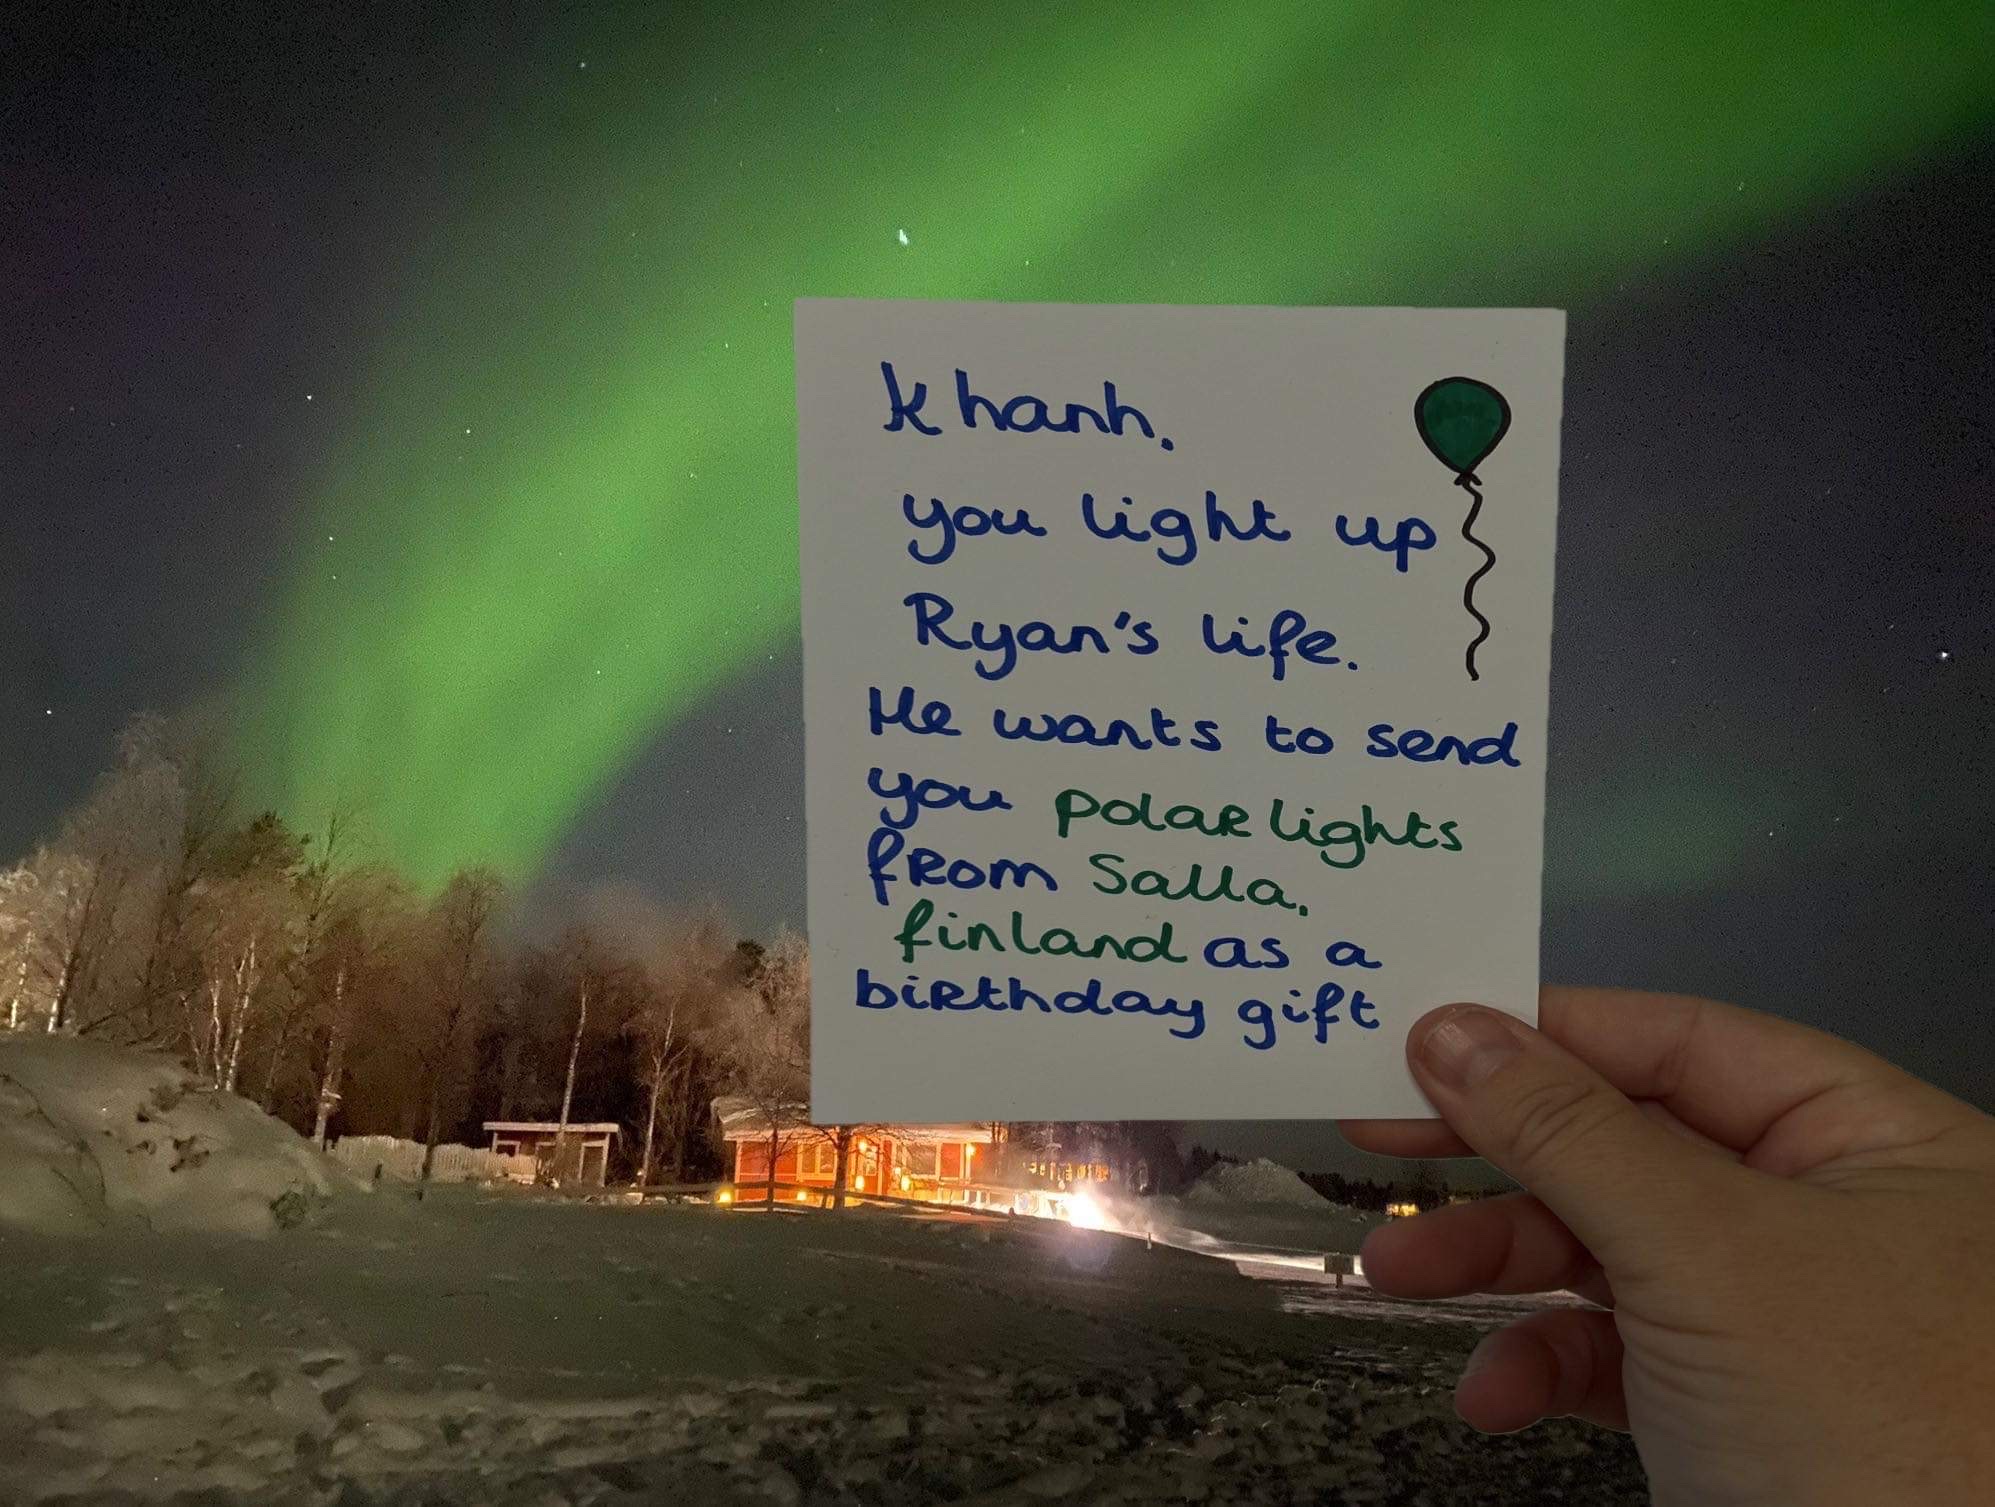 Khanh,
you light up
Ryan's life.
He wants to send
you polar lights
from Salla,
finland as a
birthday gift